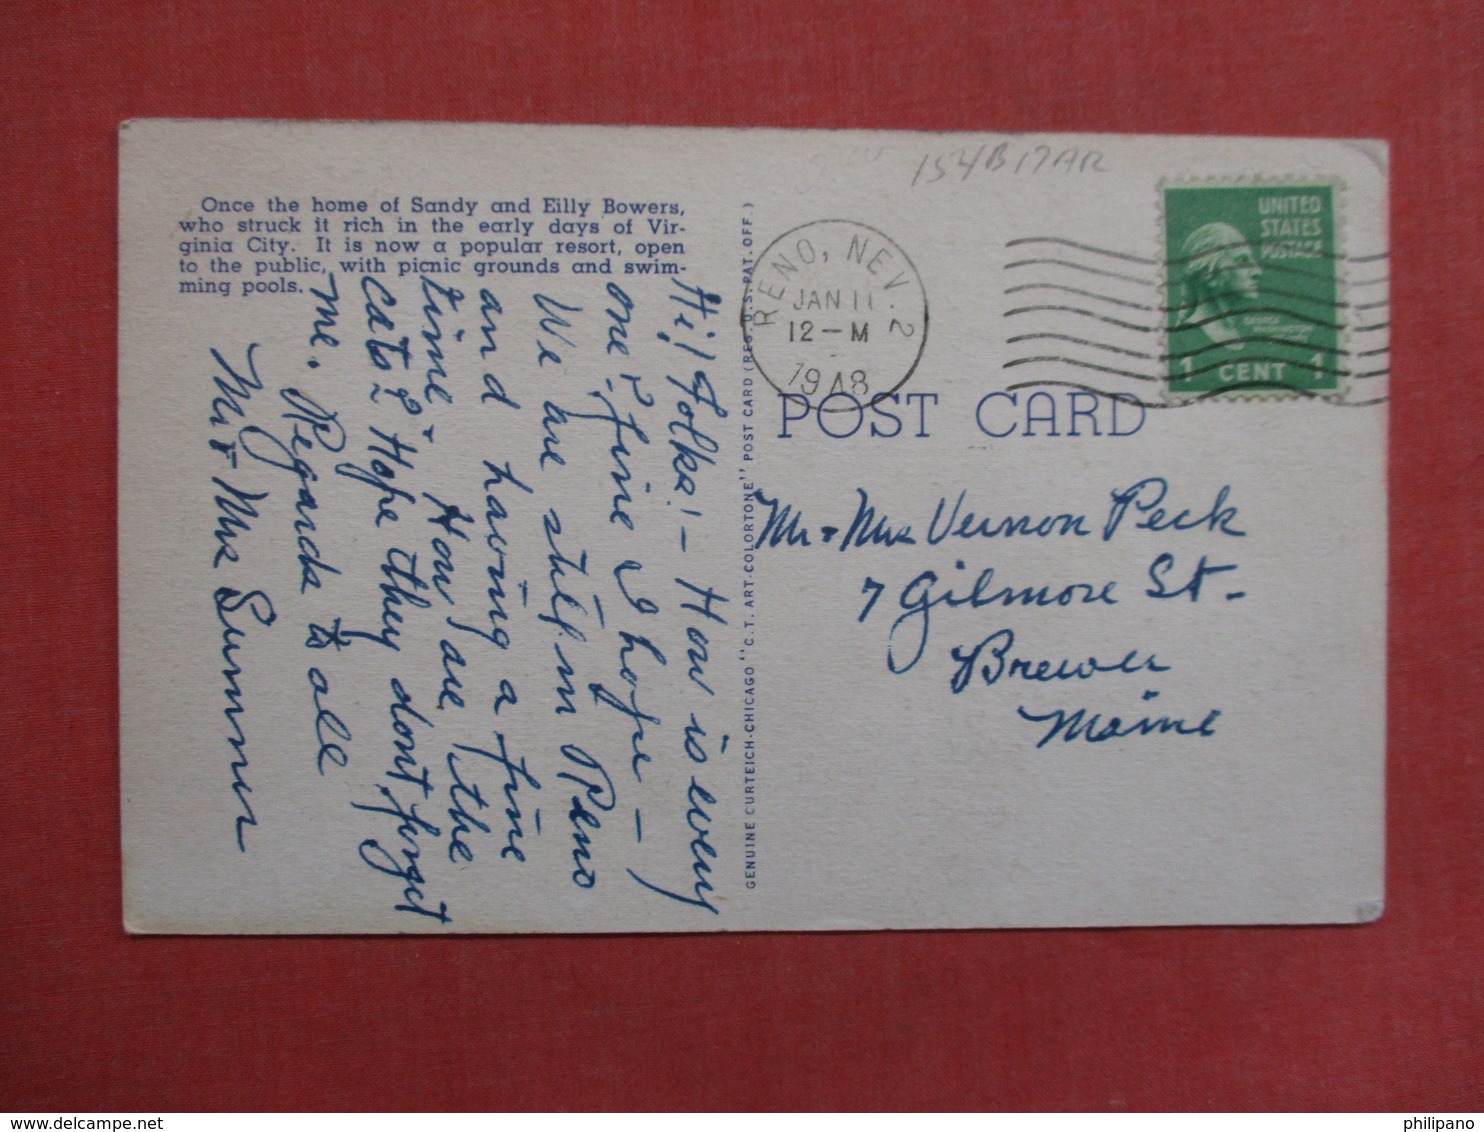 154B17AR
Once the home of Sandy and Eilly Bowers,
who struck it rich in the early days of Vir-
ginia City. It is now a popular resort, open
to the public, with picnic grounds and swim-
ming pools.
Hi! Folks! – How is every
one? fine I hope –
We are still in Reno
and having a fine
time. How are the
cats? Hope they dont forget
me. Regards to all
Mr + Mrs Sumner
GENUINE CURTEICH-CHICAGO "C.T. ART-COLORTONE" POST CARD (REG. U.S. PAT. OFF.)
RENO, NEV. 2
JAN 11
12–M
1948
UNITED
STATES
POSTAGE
1 CENT 1
POST CARD
Mr + Mrs Vernon Peck
7 Gilmore St-
Brewer
Maine
www.delcampe.net
philipano